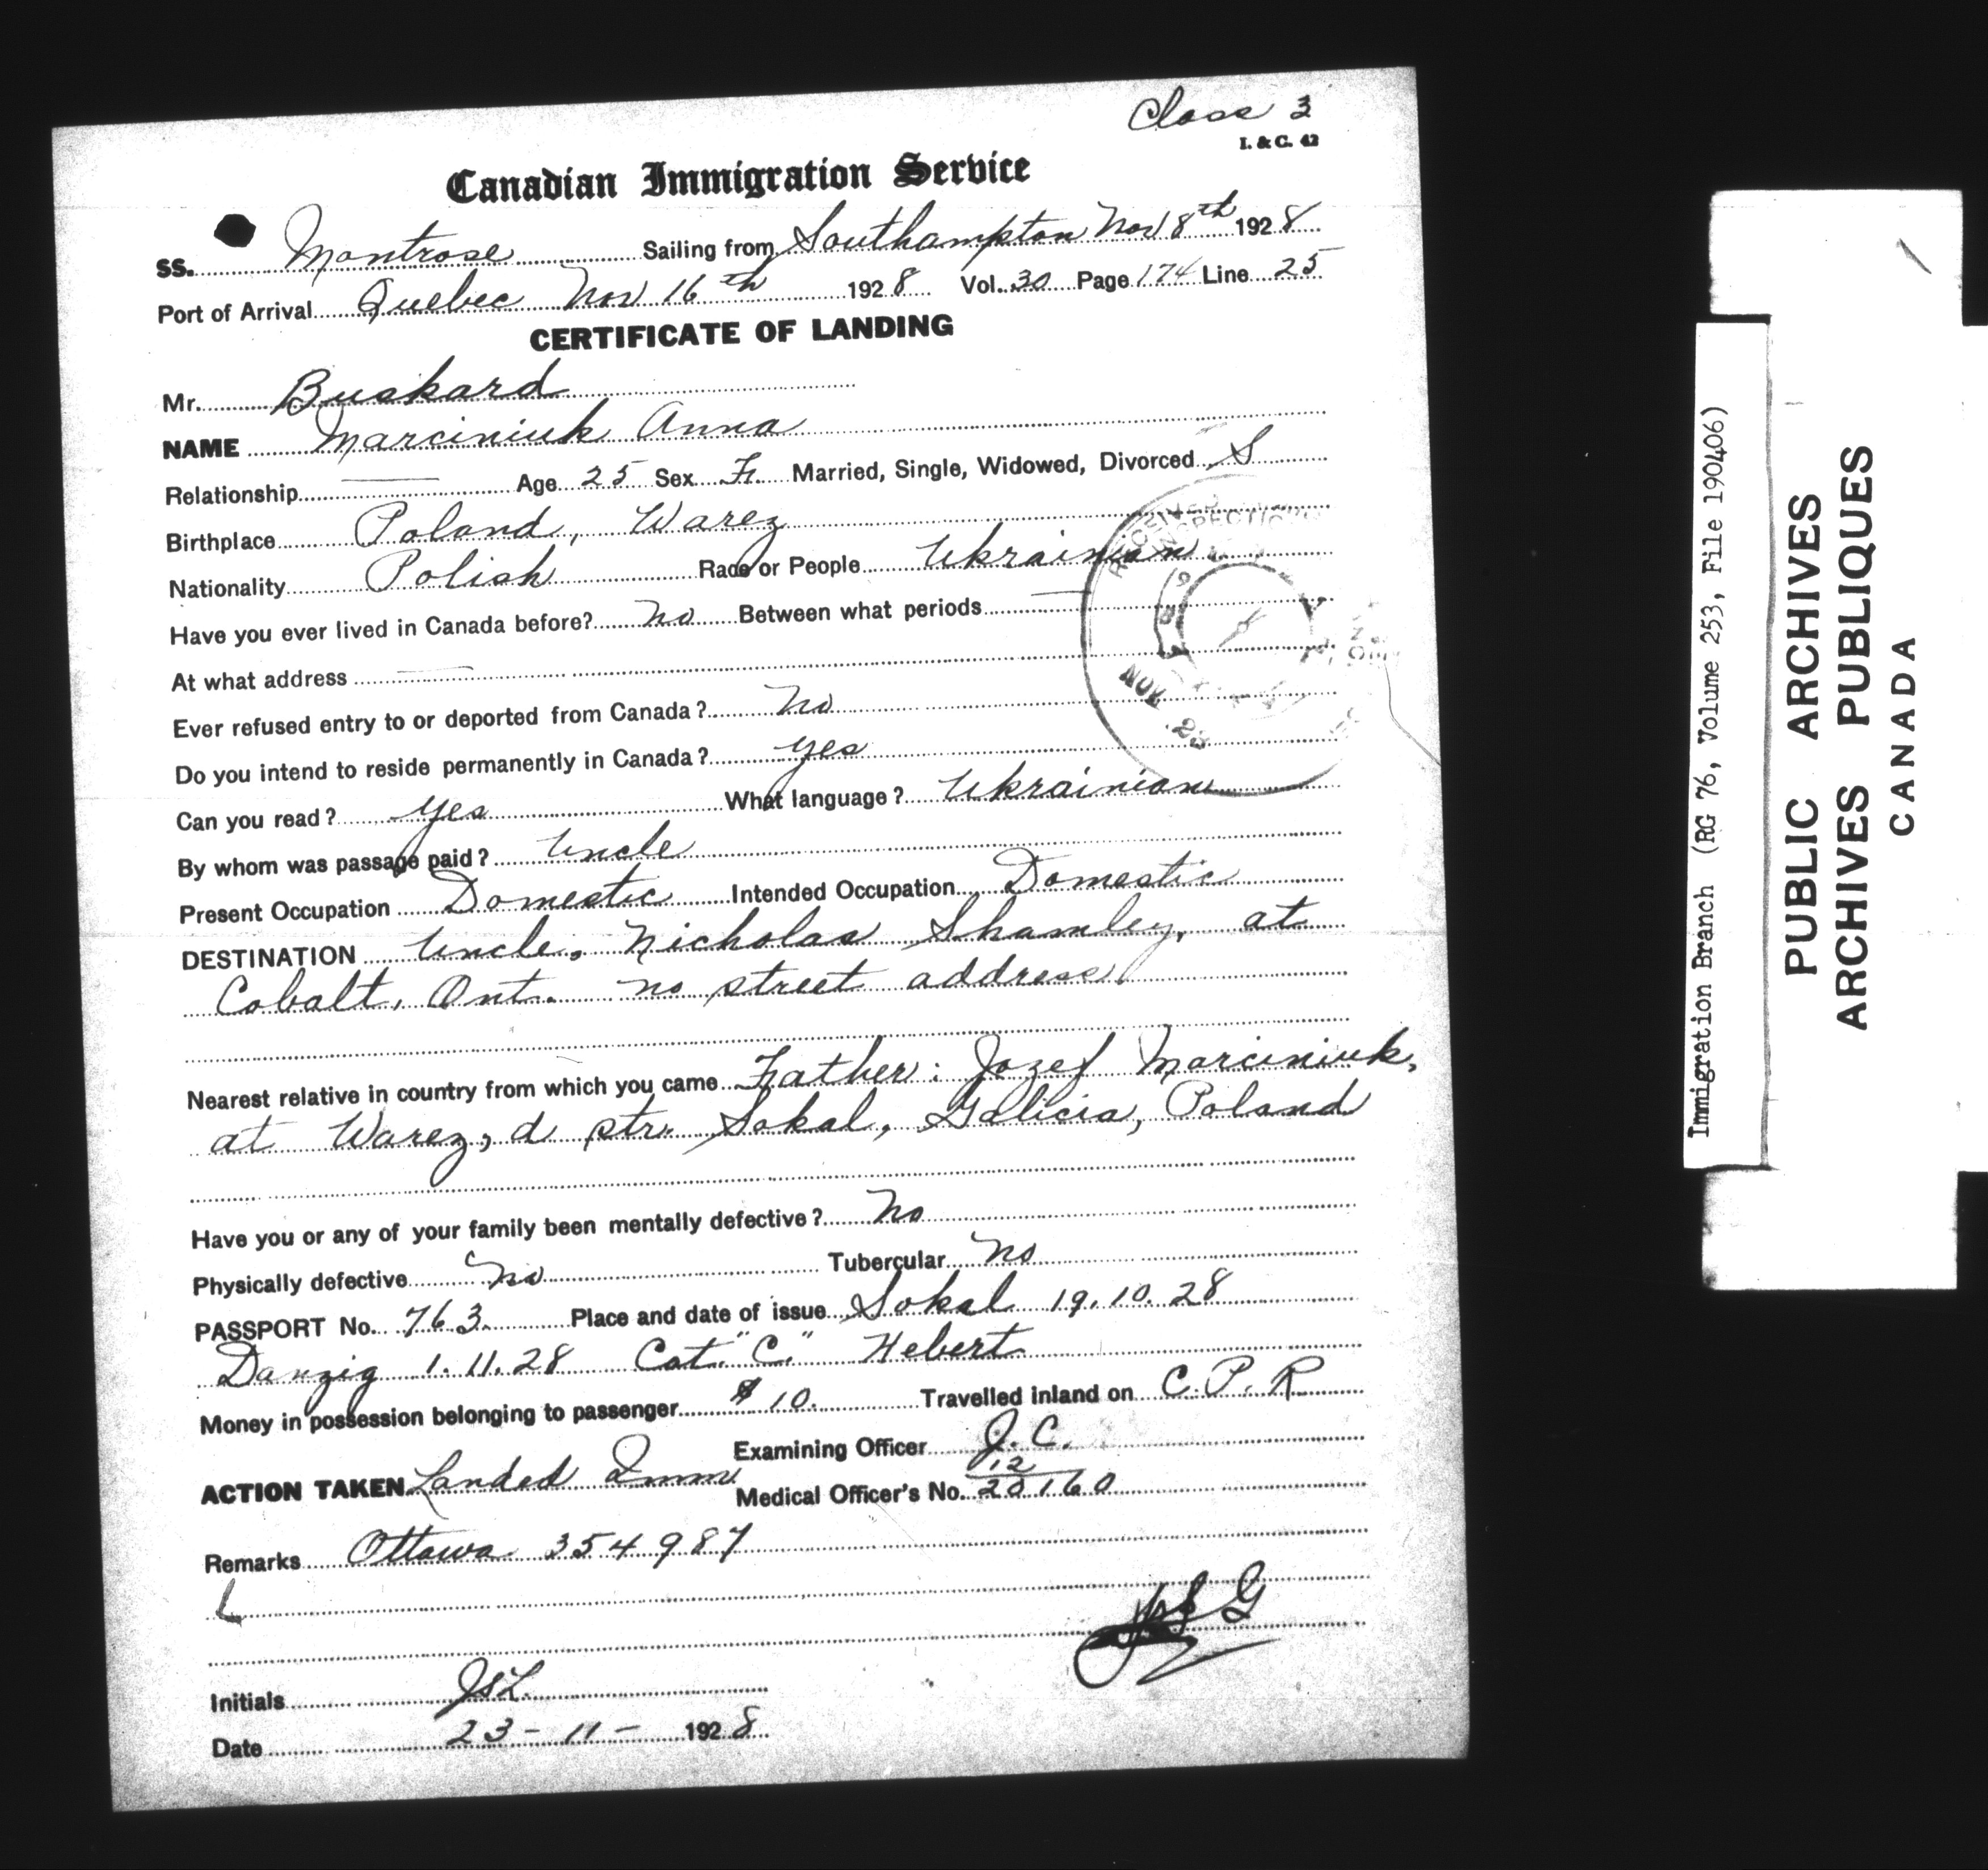 Class 3
I. & C. 42
Canadian Immigration Service
SS. Montrose Sailing from Southampton Nov 8th 1928
Port of Arrival Quebec Nov 16th 1928 Vol. 30 Page 174 Line 25
CERTIFICATE OF LANDING
Mr. Buskard
NAME Marciniuk Anna
Relationship — Age 25 Sex F. Married, Single, Widowed, Divorced S
Birthplace Poland, Warez
Nationality Polish Race or People Ukrainian
Have you ever lived in Canada before? No Between what periods —
At what address —
Ever refused entry to or deported from Canada? No
Do you intend to reside permanently in Canada? yes
Can you read? yes What language? Ukrainian
By whom was passage paid? Uncle
Present Occupation Domestic Intended Occupation Domestic
DESTINATION Uncle, Nicholas Shamley, at
Cobalt, Ont. no street address.
Nearest relative in country from which you came Father: Jozef Marciniuk,
at Warez, d str. Sokal, Galicia, Poland
Have you or any of your family been mentally defective? No
Physically defective No Tubercular No
PASSPORT No. 763. Place and date of issue Sokal 19.10.28
Danzig 1.11.28 Cat. "C." Hebert
Money in possession belonging to passenger $10. Travelled inland on C.P.R
Examining Officer J.C.
ACTION TAKEN Landed Imm.
12
Medical Officer's No. 20160
Remarks Ottawa 354987
Initials JSL.
Date 23-11- 1928
RECEIVED
INSPECTION
NOV. 23
Immigration Branch (RG 76, Volume 253, File 190406)
PUBLIC ARCHIVES
ARCHIVES PUBLIQUES
CANADA